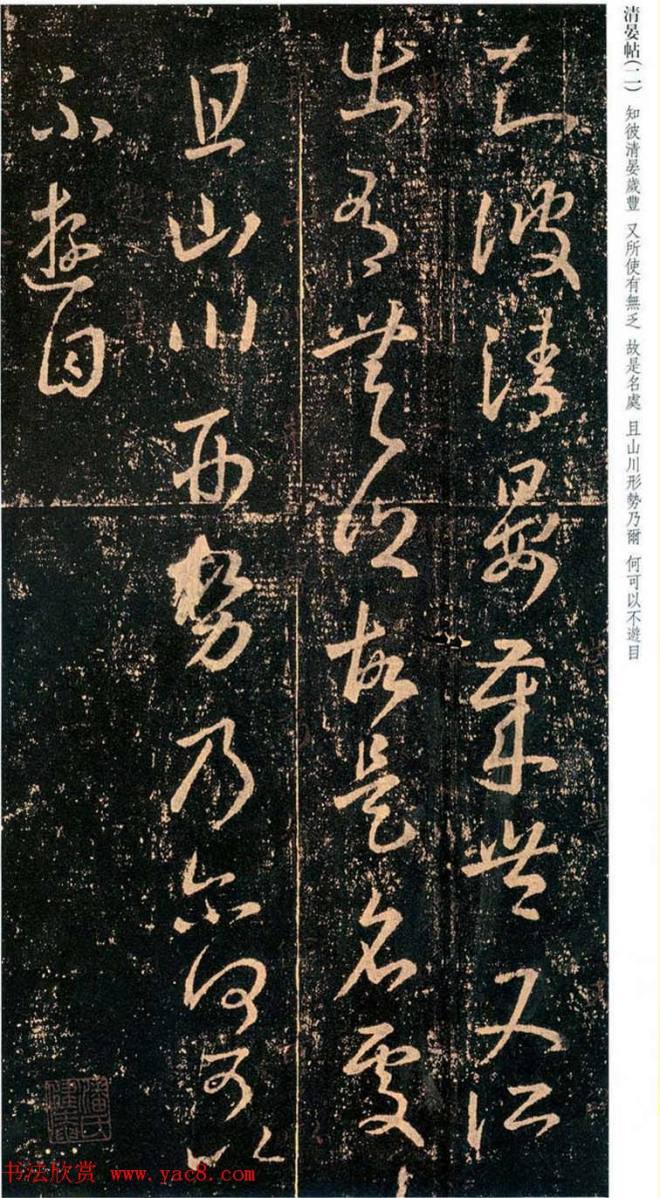 清晏帖(二) 知彼清晏歲豐 又所使有無乏 故是名處 且山川形勢乃爾 何可以不遊目
知彼清晏歲豐又所
出有無乏故是名處
且山川形勢乃爾何可以
不遊目
书法欣赏 www.yac8.com